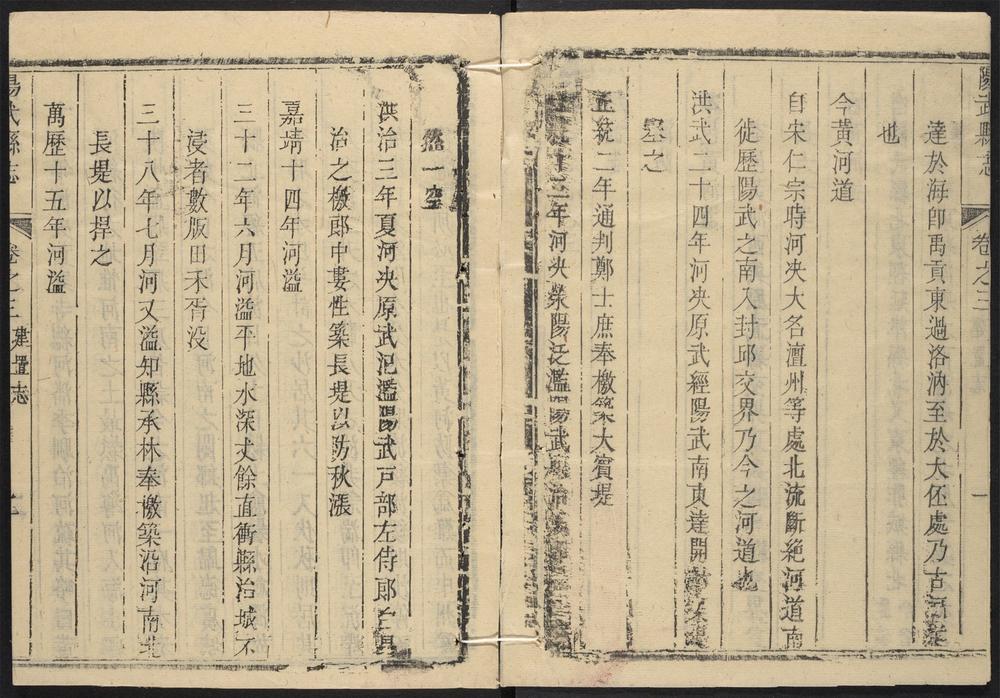 陽武縣志
卷之三
一
達於海卽禹貢東過洛汭至於大伾處乃古河道
也
今黃河道
自宋仁宗時河決大名澶州等處北流斷絕河道南
徙歷陽武之南入封邱交界乃今之河道也
洪武二十四年河決原武經陽武南東達開封
正統二年通判鄭士庶奉檄築大賓堤
十三年河決滎陽泛濫陽武
一空
洪治三年夏河決原武汜濫陽武戸部左侍郎
治之檄郎中婁性築長堤以防秋漲
嘉靖十四年河溢
三十二年六月河溢平地水深丈餘直衝縣治城不
浸者數版田禾胥没
三十八年七月河又溢知縣承林奉檄築沿河南北
長堤以捍之
萬歷十五年河溢
陽武縣志
卷之三
建置志